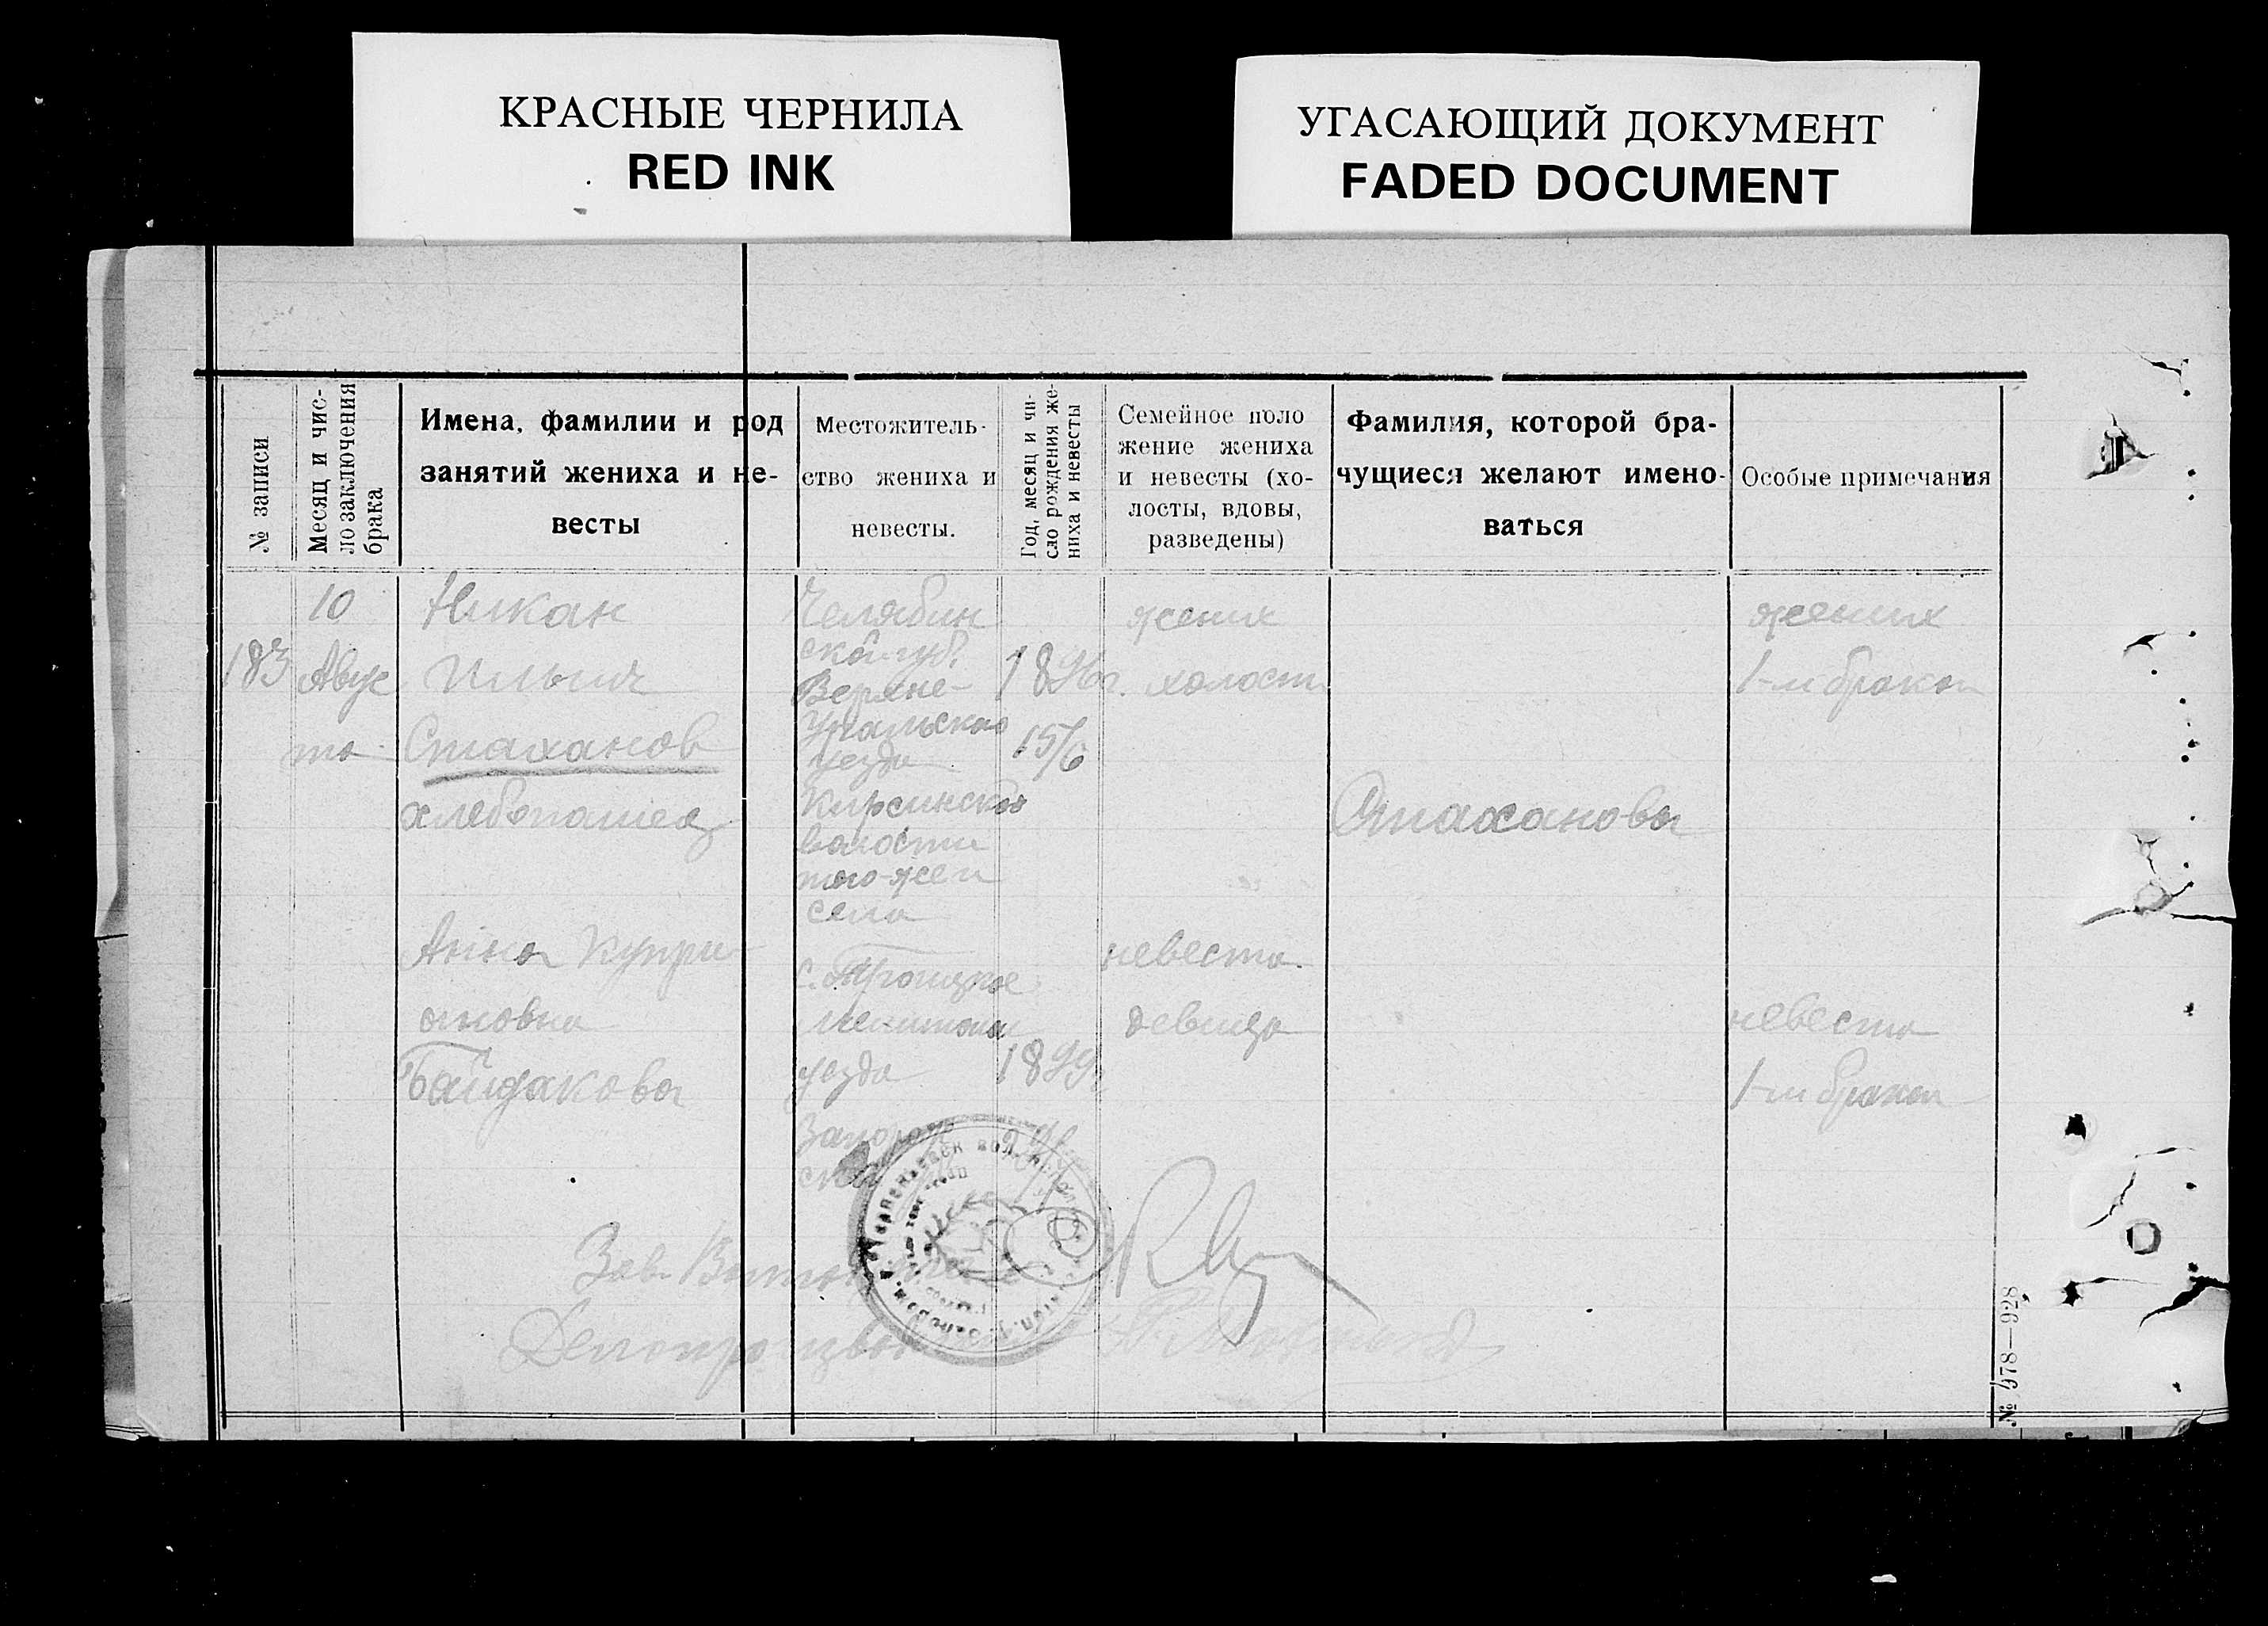 КРАСНЫЕ ЧЕРНИЛА
RED INK
УГАСАЮЩИЙ ДОКУМЕНТ
FADED DOCUMENT
№ записи
Месяц и чис-
ло заключения
брака
Имена, фамилии и род
занятий жениха и не-
весты
Местожитель-
ство жениха и
невесты.
Год, месяц и чи-
сло рождения же-
ниха и невесты
Семейное поло
жение жениха
и невесты (хо-
лосты, вдовы,
разведены)
Фамилия, которой бра-
чущиеся желают имено-
ваться
Особые примечания
183
10
Авгус
та
Никан
Ильич
Стаханов
хлебопашец
Челябин
ской губ.
Верхне-
Уральского
уезда
Кирсинской
волости
того-же
села
1896г.
15/6
жених
холост
Стахановы
жених
1-м браком
Анна Купри
ановна
Байдакова
с. Троицкое
уезда
Запорож
ской
1899
невеста
девица
невеста
1-м браком
Зав.
Делопроизвод
№ 978—928